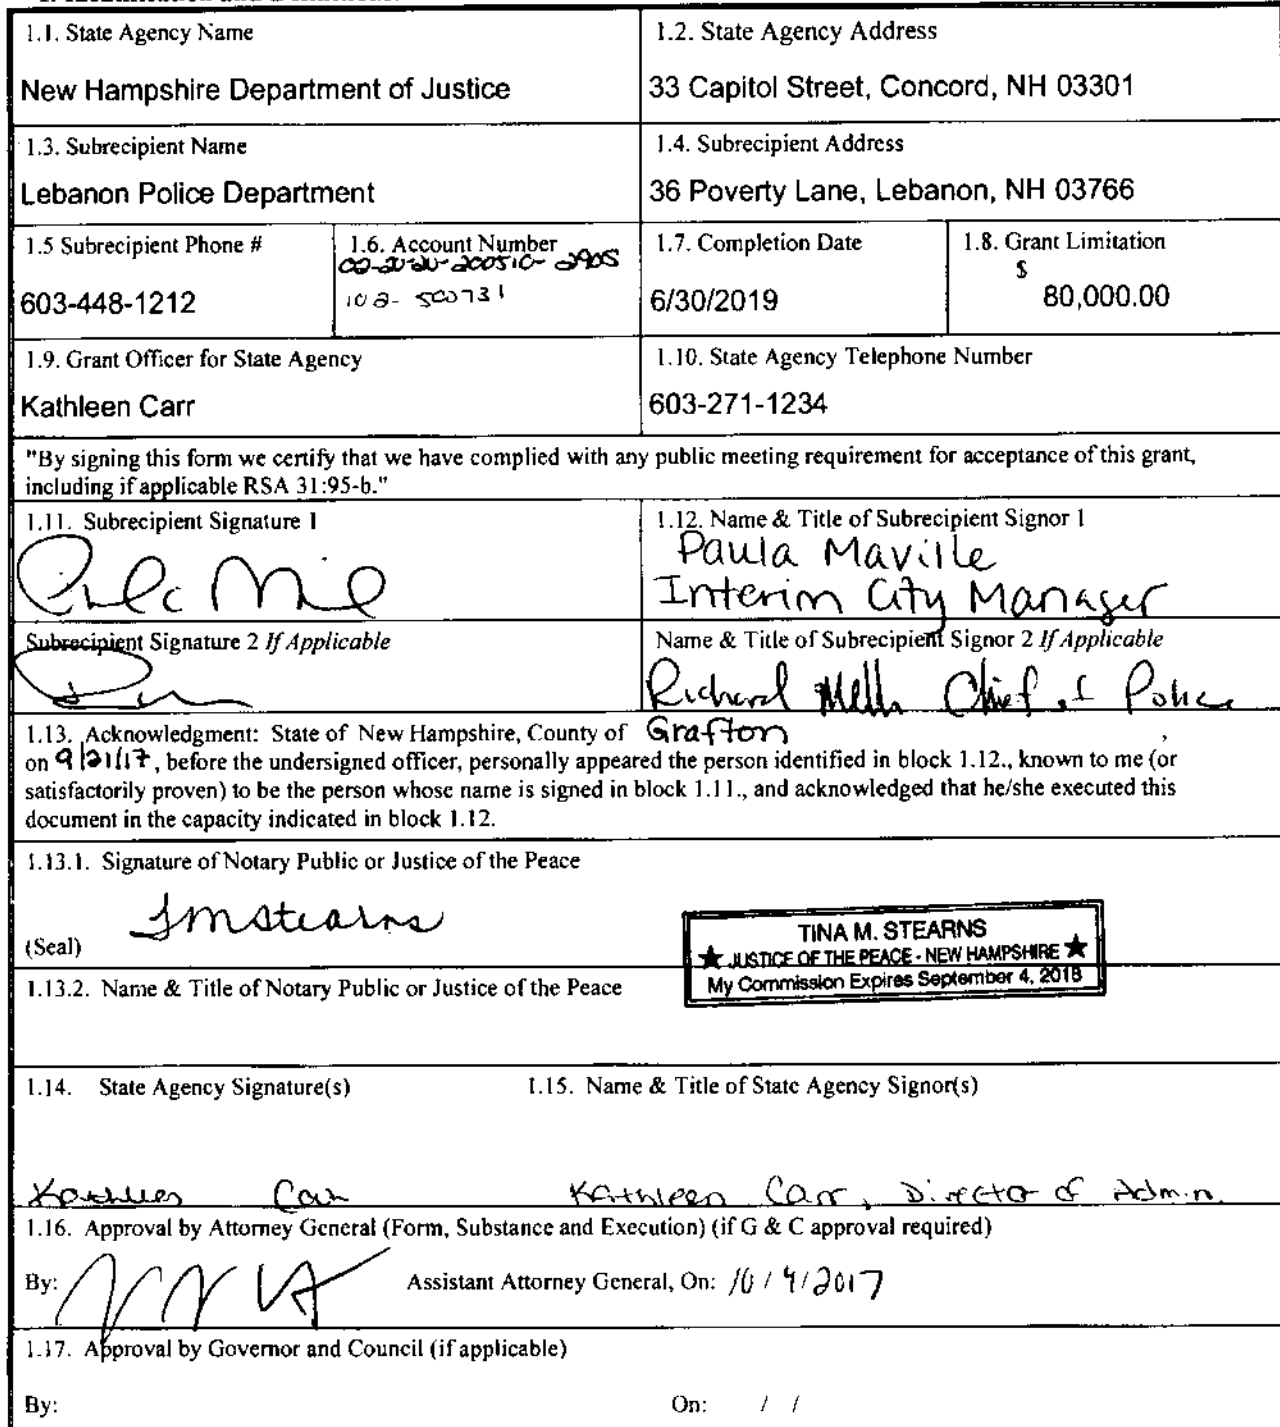 1.1. State Agency Name
New Hampshire Department of Justice
1.2. State Agency Address
33 Capitol Street, Concord, NH 03301
1.3. Subrecipient Name
Lebanon Police Department
1.4. Subrecipient Address
36 Poverty Lane, Lebanon, NH 03766
1.5 Subrecipient Phone #
603-448-1212
1.6. Account Number
02-20-20-200510-2905
102-500731
1.7. Completion Date
6/30/2019
1.8. Grant Limitation
$
80,000.00
1.9. Grant Officer for State Agency
Kathleen Carr
1.10. State Agency Telephone Number
603-271-1234
"By signing this form we certify that we have complied with any public meeting requirement for acceptance of this grant,
including if applicable RSA 31:95-b."
1.11. Subrecipient Signature 1
1.12. Name & Title of Subrecipient Signor 1
Paula Maville
Interim City Manager
Subrecipient Signature 2 If Applicable
Name & Title of Subrecipient Signor 2 If Applicable
Richard Mello Chief of Police
1.13. Acknowledgment: State of New Hampshire, County of Grafton ,
on 9/21/17, before the undersigned officer, personally appeared the person identified in block 1.12., known to me (or
satisfactorily proven) to be the person whose name is signed in block 1.11., and acknowledged that he/she executed this
document in the capacity indicated in block 1.12.
1.13.1. Signature of Notary Public or Justice of the Peace
TMStearns
(Seal)
TINA M. STEARNS
★ JUSTICE OF THE PEACE - NEW HAMPSHIRE ★
My Commission Expires September 4, 2018
1.13.2. Name & Title of Notary Public or Justice of the Peace
1.14. State Agency Signature(s)
1.15. Name & Title of State Agency Signor(s)
Kathleen Carr
Kathleen Carr, Director of Admin.
1.16. Approval by Attorney General (Form, Substance and Execution) (if G & C approval required)
By:
Assistant Attorney General, On: 10/4/2017
1.17. Approval by Governor and Council (if applicable)
By:
On: / /